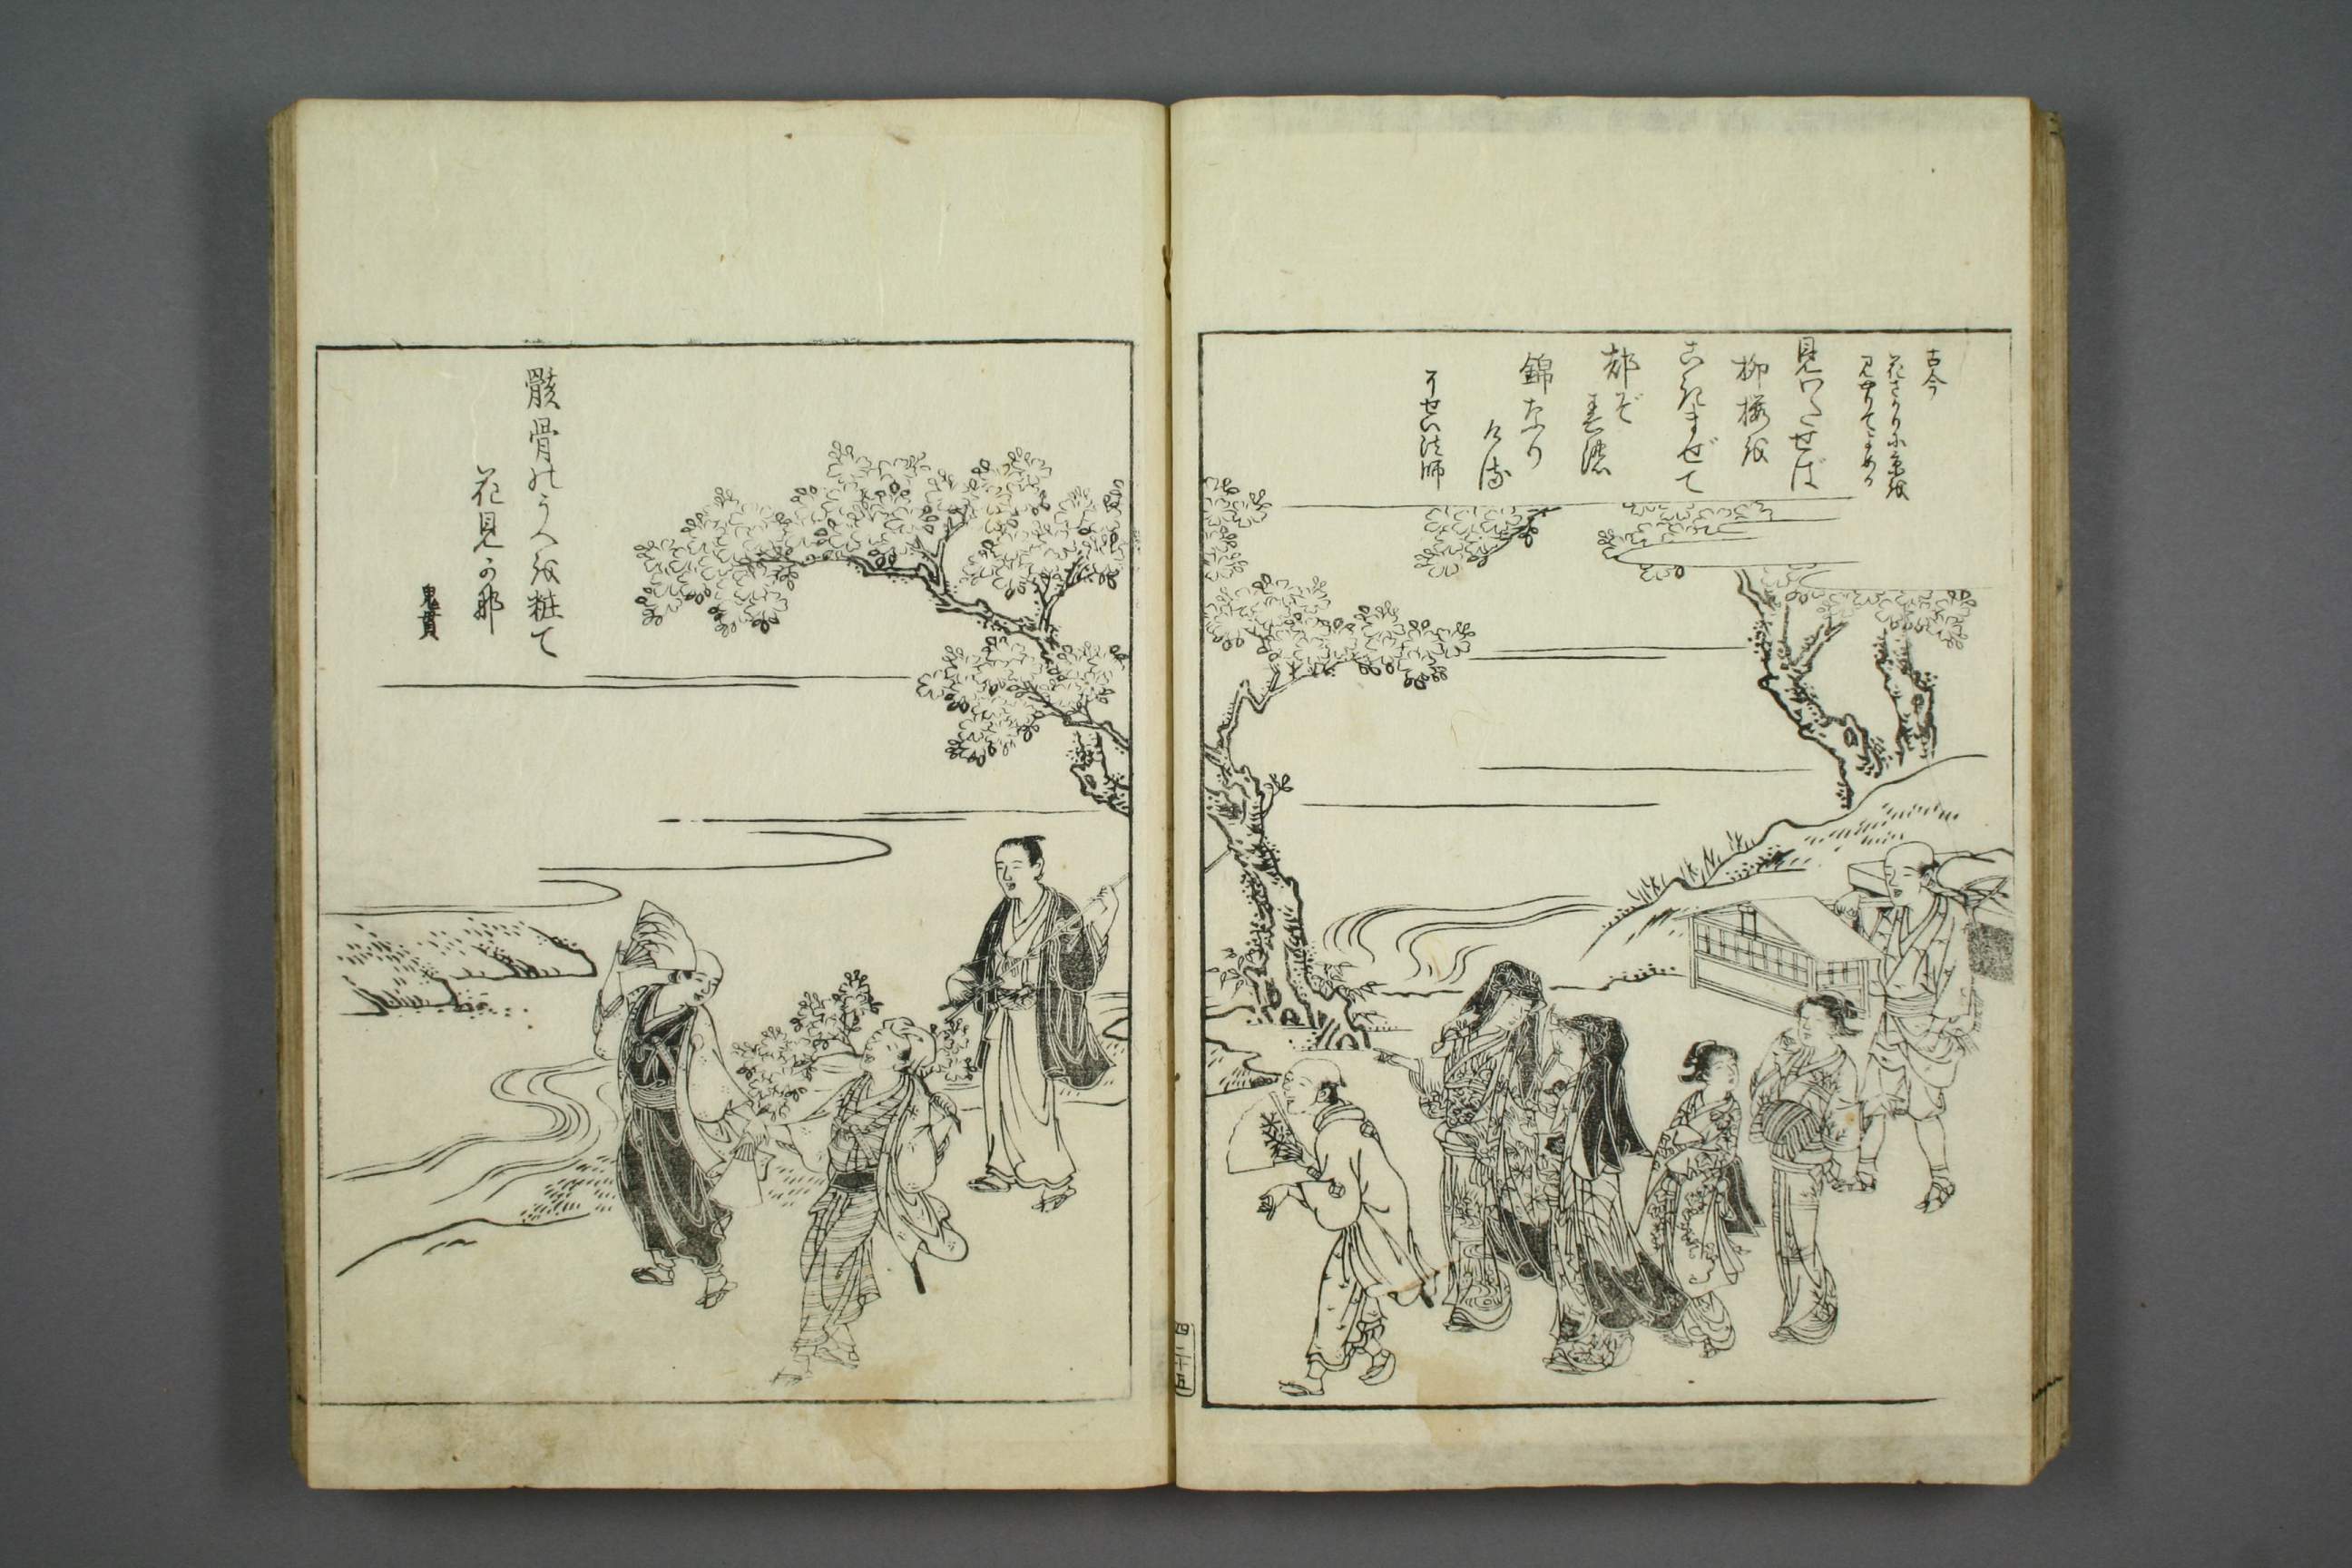 古今
花さかりに京を
見やりてよめる
見わたせば
柳桜を
こきまぜて
都ぞ
春の
錦なり
ける
そせい法師
骸骨のうへを粧て
花見か那
鬼貫
四ノ十五